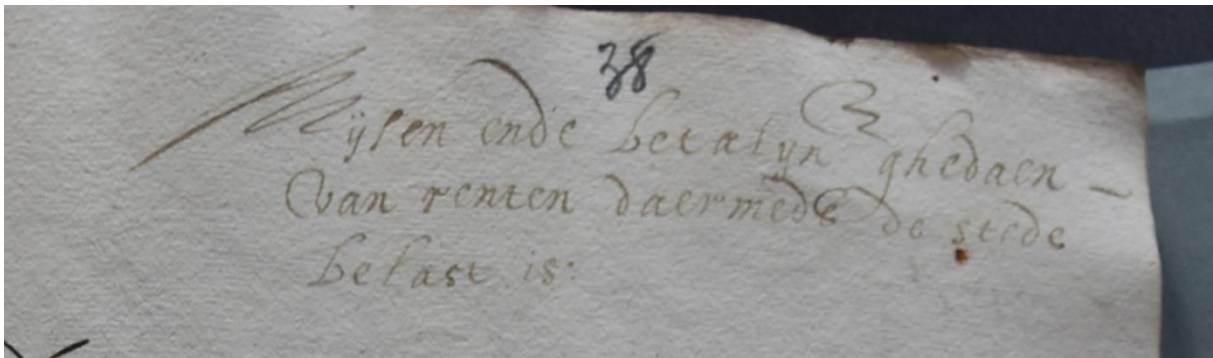 38
Wÿsen ende betalyn ghedaen
van renten daermede de stede
belast is: